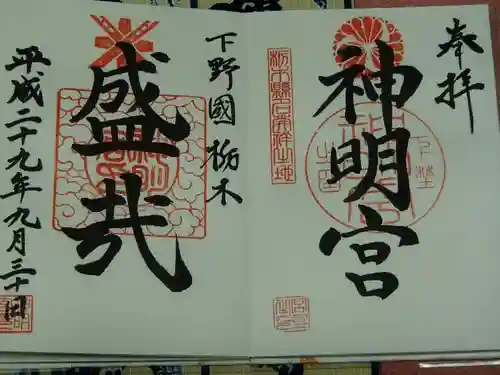 奉拝
神明宮
栃木縣名発祥出地
下野國 栃木
盛哉
平成二十九年九月三十日